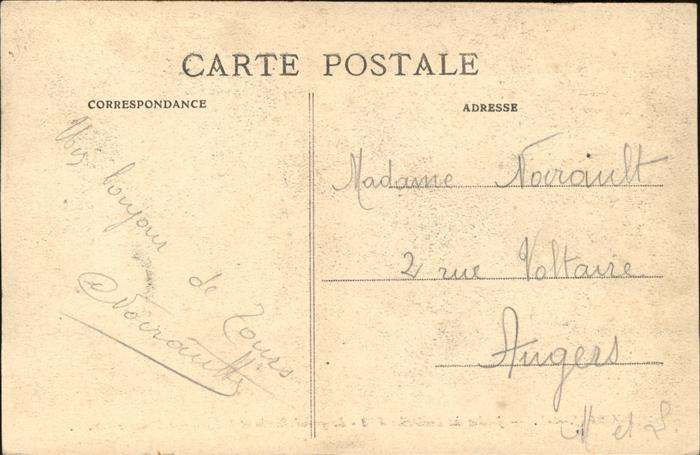 CARTE POSTALE
CORRESPONDANCE
bonjour
de Tours
Noirault
ADRESSE
Madame Noirault
2 rue Voltaire
Angers
M et L